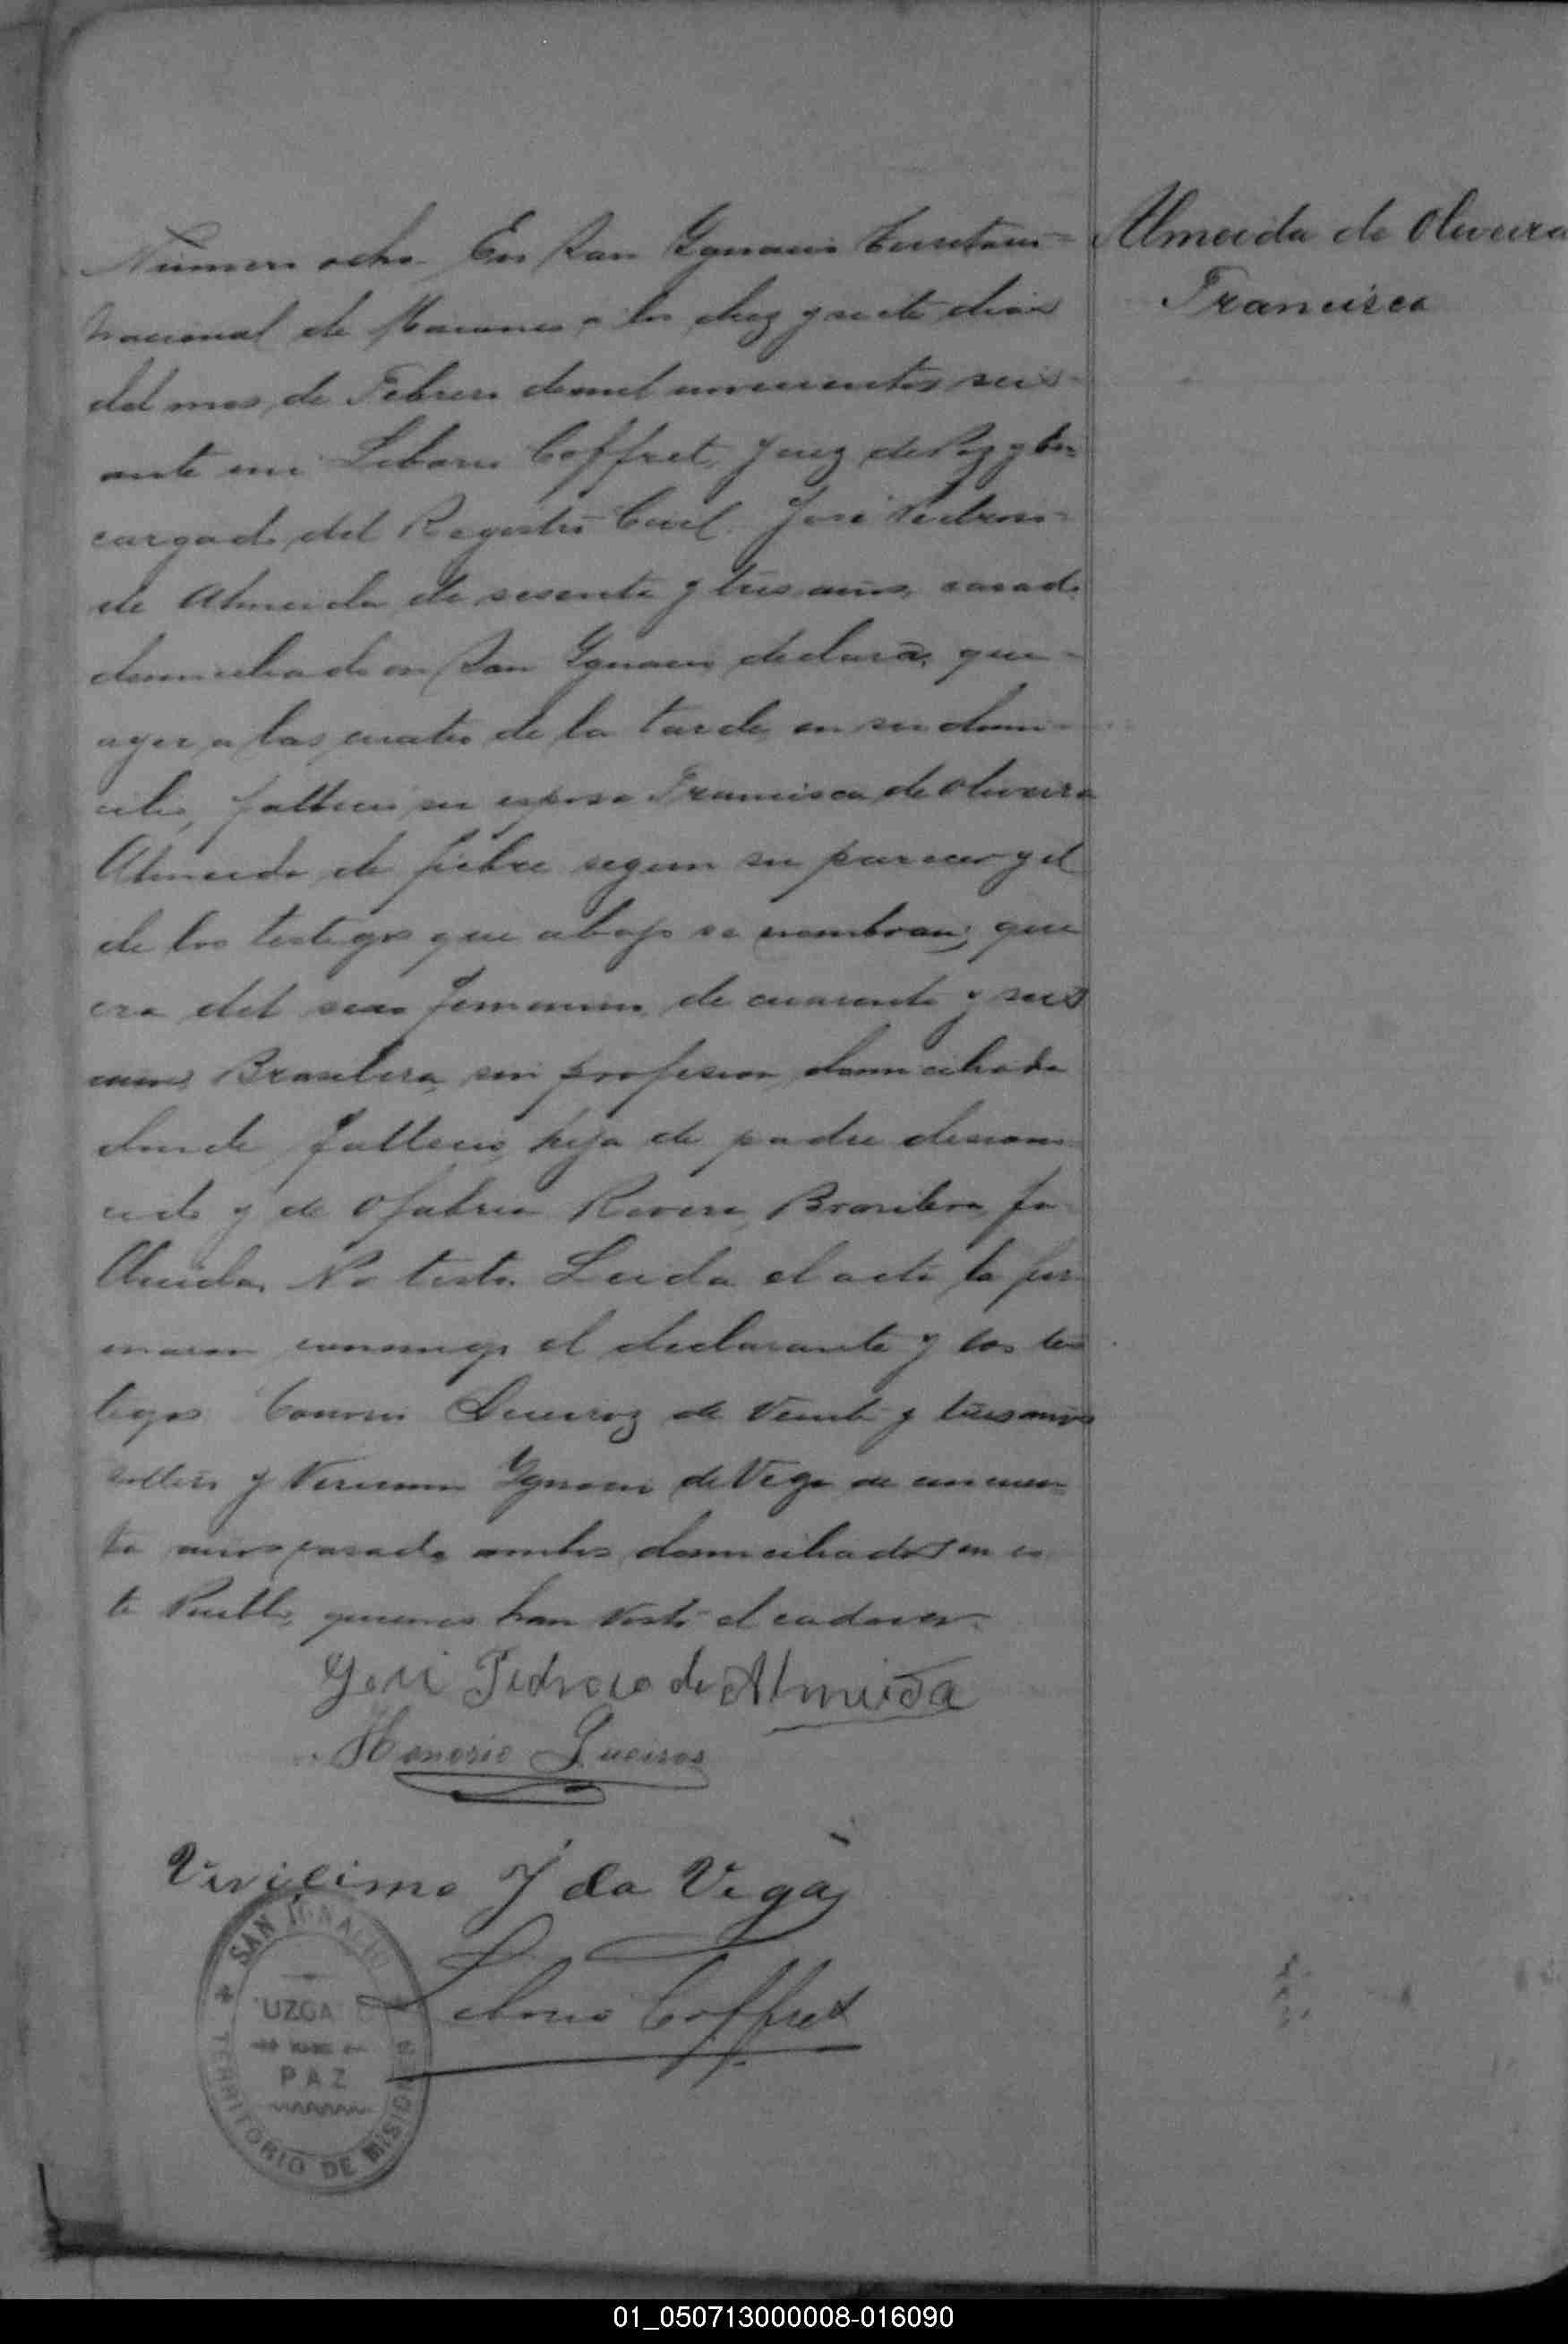 Almeida de Oliveira
Francisca
Número ocho En San Ygnacio Territorio
Nacional de Misiones a los diez y siete dias
del mes de Febrero de mil novecientos seis
ante mi Liborio Coffret, Juez de Paz y En=
cargado del Registro Civil José Pedroso
de Almeida de sesenta y tres años, casado
domiciliado en San Ygnacio declara, que
ayer a las cuatro de la tarde en su domi-
cilio, falleció su esposa Francisca de Oliveira
Almeida de fiebre segun su parecer y el
de los testigos que abajo se nombran; que
era del sexo femenino de cuarenta y seis
años Brasilera, sin profesion domiciliada
donde falleció, hija de padre descono
cido y de Rivera, Brasilera, fa
llecida. No testó. Leida el acta la fir
maron conmigo el declarante y los tes
tigos Queiroz de Veinte y tres años
soltero y Verissimo Ygnacio de Vega de cincuen=
ta años casado ambos domiciliados en es
te Pueblo, quienes han visto el cadaver.
José Pedroso de Almeida
Honorio Queiros
Viricimo Y da Vega
Liborio Coffret
SAN IGNACIO
JUZGADO
DE
PAZ
TERRITORIO DE MISIONES
01_050713000008-016090